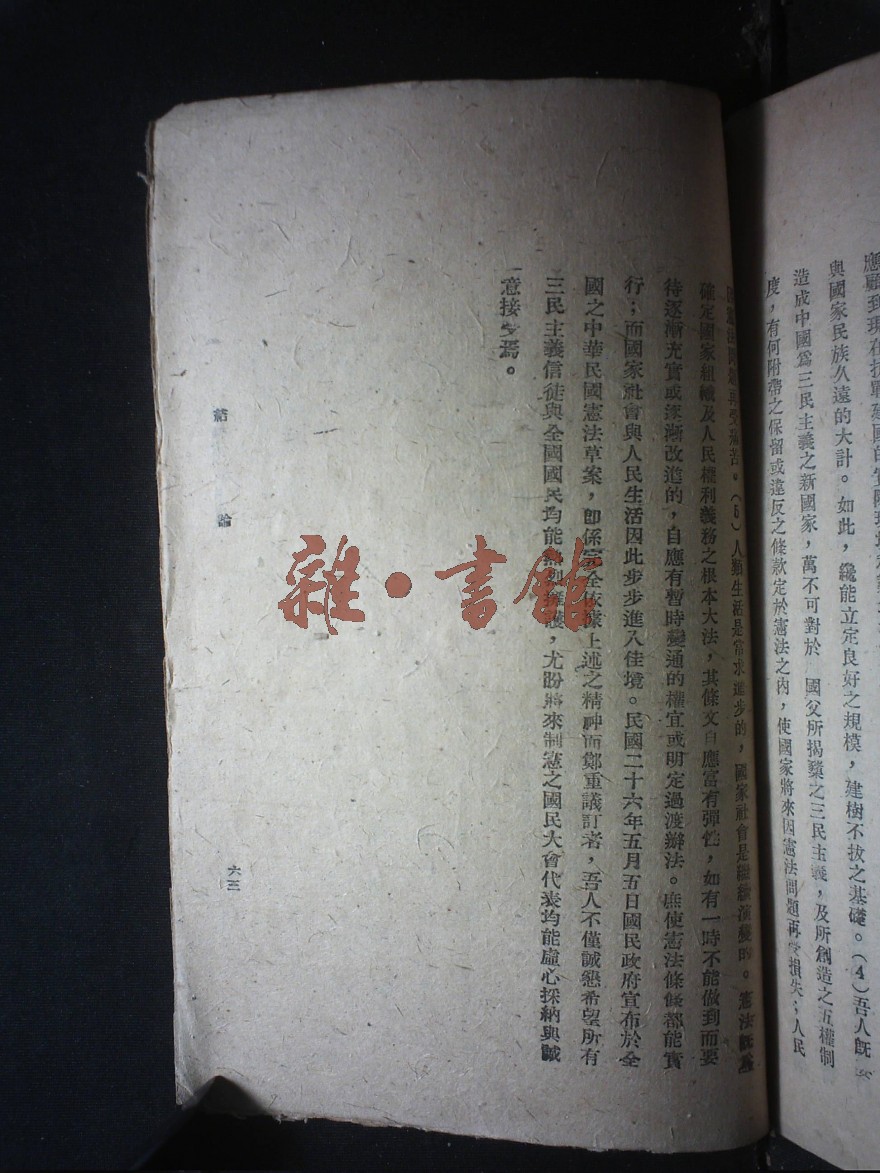 應顧到現在抗戰建國的實際
與國家民族久遠的大計。如此，纔能立定良好之規模，建樹不拔之基礎。（4）吾人既
造成中國爲三民主義之新國家，萬不可對於　國父所揭櫫之三民主義，及所創造之五權制
度，有何附帶之保留或違反之條款定於憲法之內，使國家將來因憲法問題再受損失；人民
再受痛苦。（5）人類生活是常求進步的，國家社會是繼續演變的。憲法既爲
確定國家組織及人民權利義務之根本大法，其條文自應富有彈性，如有一時不能做到而要
待逐漸充實或逐漸改進的，自應有暫時變通的權宜或明定過渡辦法。庶使憲法條條都能實
行；而國家社會與人民生活因此步步進入佳境。民國二十六年五月五日國民政府宣布於全
國之中華民國憲法草案，卽係完全依據上述之精神而鄭重議訂者，吾人不僅誠懇希望所有
三民主義信徒與全國國民均能熱烈擁護，尤盼將來制憲之國民大會代表均能虛心採納與誠
意接受焉。
結論
六三
雜·書館